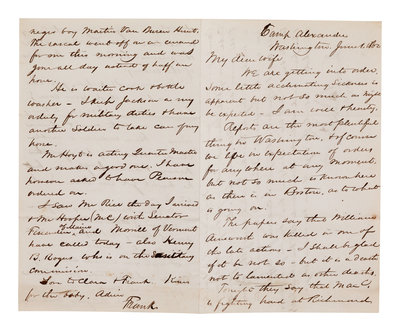 Camp Alexander
Washington, June 1st 1862
My dear Wife
We are getting into order.
Some little acclimating sickness is
apparent but not so much as might
be expected - I am well & hearty.
Reports are the most plentiful
thing in Washington & of course
we live in expectation of orders
for any where at any moment,
but not so much is known here
as there is in Boston, as to what
is going on.
The papers say that William
was killed in one of
the late actions - I shall be glad
if it be not so - but it is a death
not to be lamented as other deaths.
Tonight they say that McC.
is fighting hard at Richmond.
negro boy Martin Van Buren
The rascal went off on an errand
for me this morning and was
gone all day instead of half an
hour.
He is waiter, cook & bottle
washer - I keep Jackson as my
orderly for military duties & have
another soldier to take care of my
horse.
Mr Hoyt is acting Quarter Master
and makes a good one. I have
however asked to have Pierson
ordered on.
I saw Mr Rice the day I arrived
& Mr Hooper (M.C.) with Senator
Fessenden, and Morrill of Vermont
have called today - also Henry
B. Rogers who is on the sanitary
commission.
Love to Clara & Frank. Kisses
for the baby. Adieu
Frank.